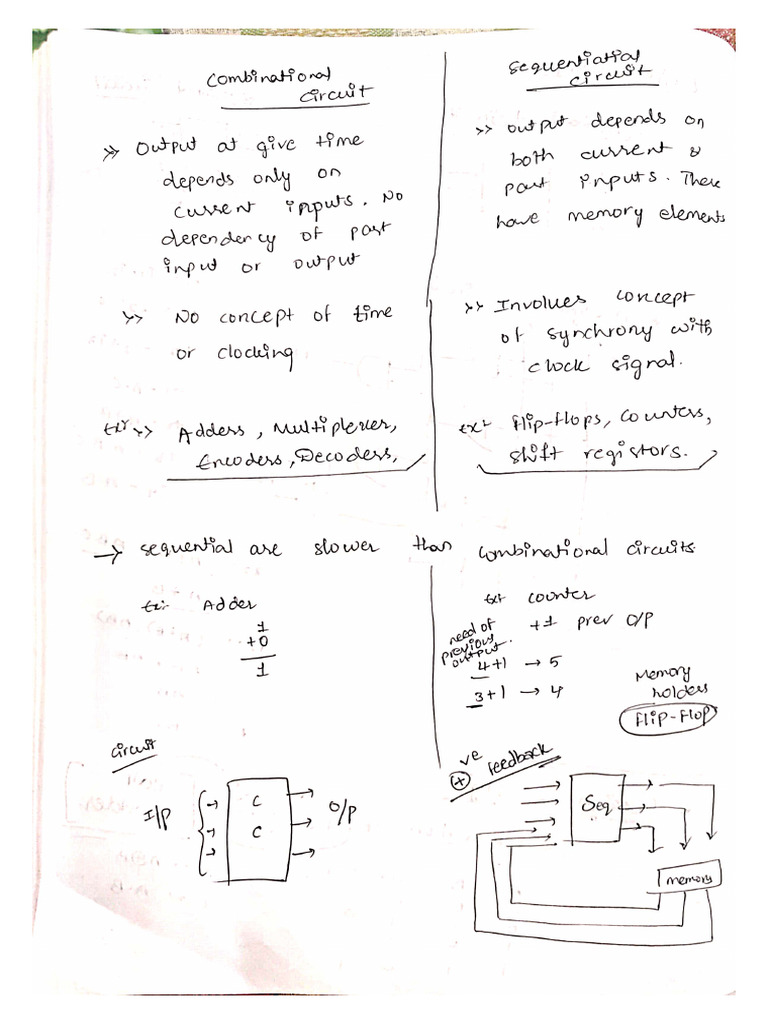 Combinational
circuit
>> Output at give time
depends only on
current inputs. No
dependency of past
input or output
>> No concept of time
or clocking
Ex: >> Adders, Multiplexer,
Encoders, Decoders,
Sequentiatial
circuit
>> Output depends on
both current &
past inputs. These
have memory elements
>> Involves concept
of synchrony with
clock signal.
Ex: Flip-flops, Counters,
Shift registors.
→ Sequential are slower than combinational circuits
Ex: Adder
1
+0
1
Ex: Counter
+1 prev O/P
need of
previous
output.
4+1 → 5
3+1 → 4
Memory
holders
Flip-Flop
Circuit
I/P
C
C
O/P
+ ve feedback
Seq
memory